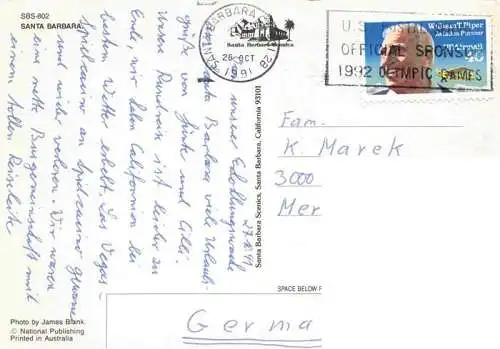 SBS-802
SANTA BARBARA...
SANTA BARBARA
26 OCT
1991
Santa Barbara Scenics
U.S. POSTAL
OFFICIAL SPONSOR
1992 OLYMPIC GAMES
William T. Piper
Aviation Pioneer
US Airmail
40
27.10.91
unserer Erholungswoche
Santa Barbara viele Urlaubs-
grüße von
und Cilli.
Unsere Rundreise ist leider zu
Ende wir haben Californien bei
bestem Wetter erlebt. Las Vegas -
Spielcasino an Spielcasino gewonnen
und wieder verloren. Wir waren
eine nette Busgemeinschaft mit
einem tollen Reiseleiter
Santa Barbara Scenics, Santa Barbara, California 93101
Fam.
K. Marek
3000
Mer
SPACE BELOW
Germa
Photo by James Blank.
© National Publishing
Printed in Australia